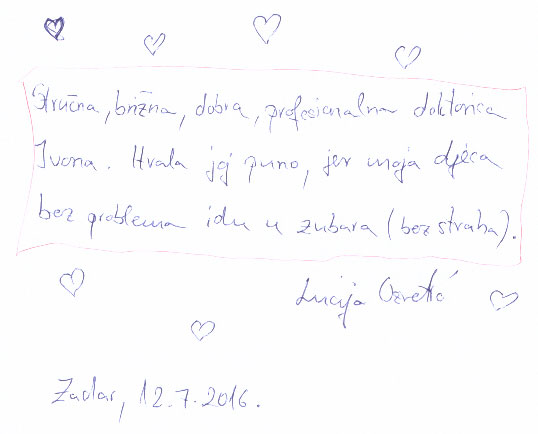 Stručna, brižna, dobra, profesionalna doktorica
Ivona. Hvala joj puno, jer moja djeca
bez problema idu u zubara (bez straha).
Lucija
Zadar, 12.7.2016.